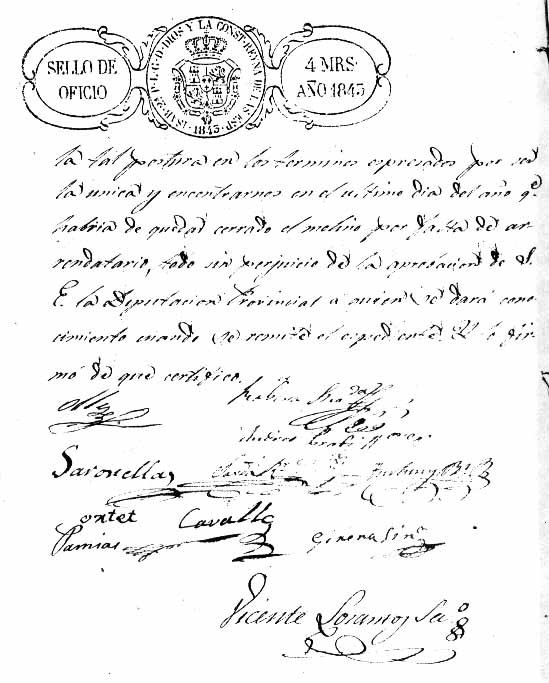 SELLO DE
OFICIO
ISAB. 2ª P. L. G. D. DIOS Y LA CONST. REYNA DE LAS ESP.
1843
4 MRS.
AÑO 1843
la tal postura en los terminos espresados por ser
la unica y encontrarnos en el ultimo dia del año qe.
habria de quedar cerrado el molino por falta de ar-
rendatario, todo sin perjuicio de la aprobacion de S.
E. la Diputacion Provincial a quien se dará cono-
cimiento cuando se remite el espediente. Y lo fir-
mó de que certifico.
Saronellas
ontet Cavallé
Pamias Ginena Sinº
Vicente Loramos Seº